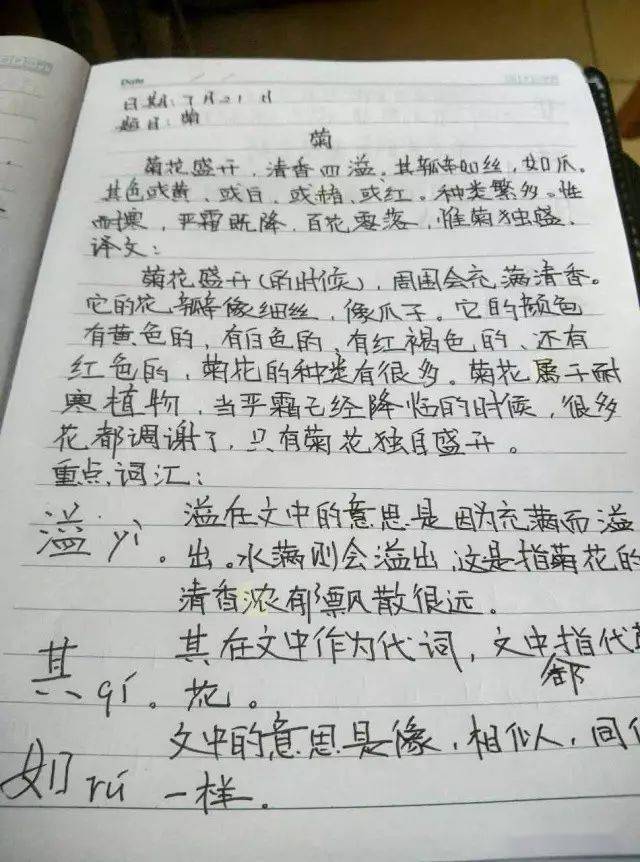 Date
日期：7月21日
题目：菊
菊
菊花盛开，清香四溢。其瓣如丝，如爪。
其色或黄、或白、或赭、或红。种类繁多。性
耐寒，严霜既降，百花零落，惟菊独盛．
译文：
菊花盛开（的时候），周围会充满清香。
它的花瓣像细丝，像爪子。它的颜色
有黄色的，有白色的，有红褐色的、还有
红色的，菊花的种类有很多。菊花属于耐
寒植物，当严霜已经降临的时候，很多
花都调谢了，只有菊花独自盛开。
重点词汇：
溢 yì。 溢在文中的意思是因为充满而溢
出。水满则会溢出，这是指菊花的
清香浓郁飘散很远。
其 qí。 其在文中作为代词，文中指代
都
花。
如 rú 文中的意思是像，相似，同
一样。